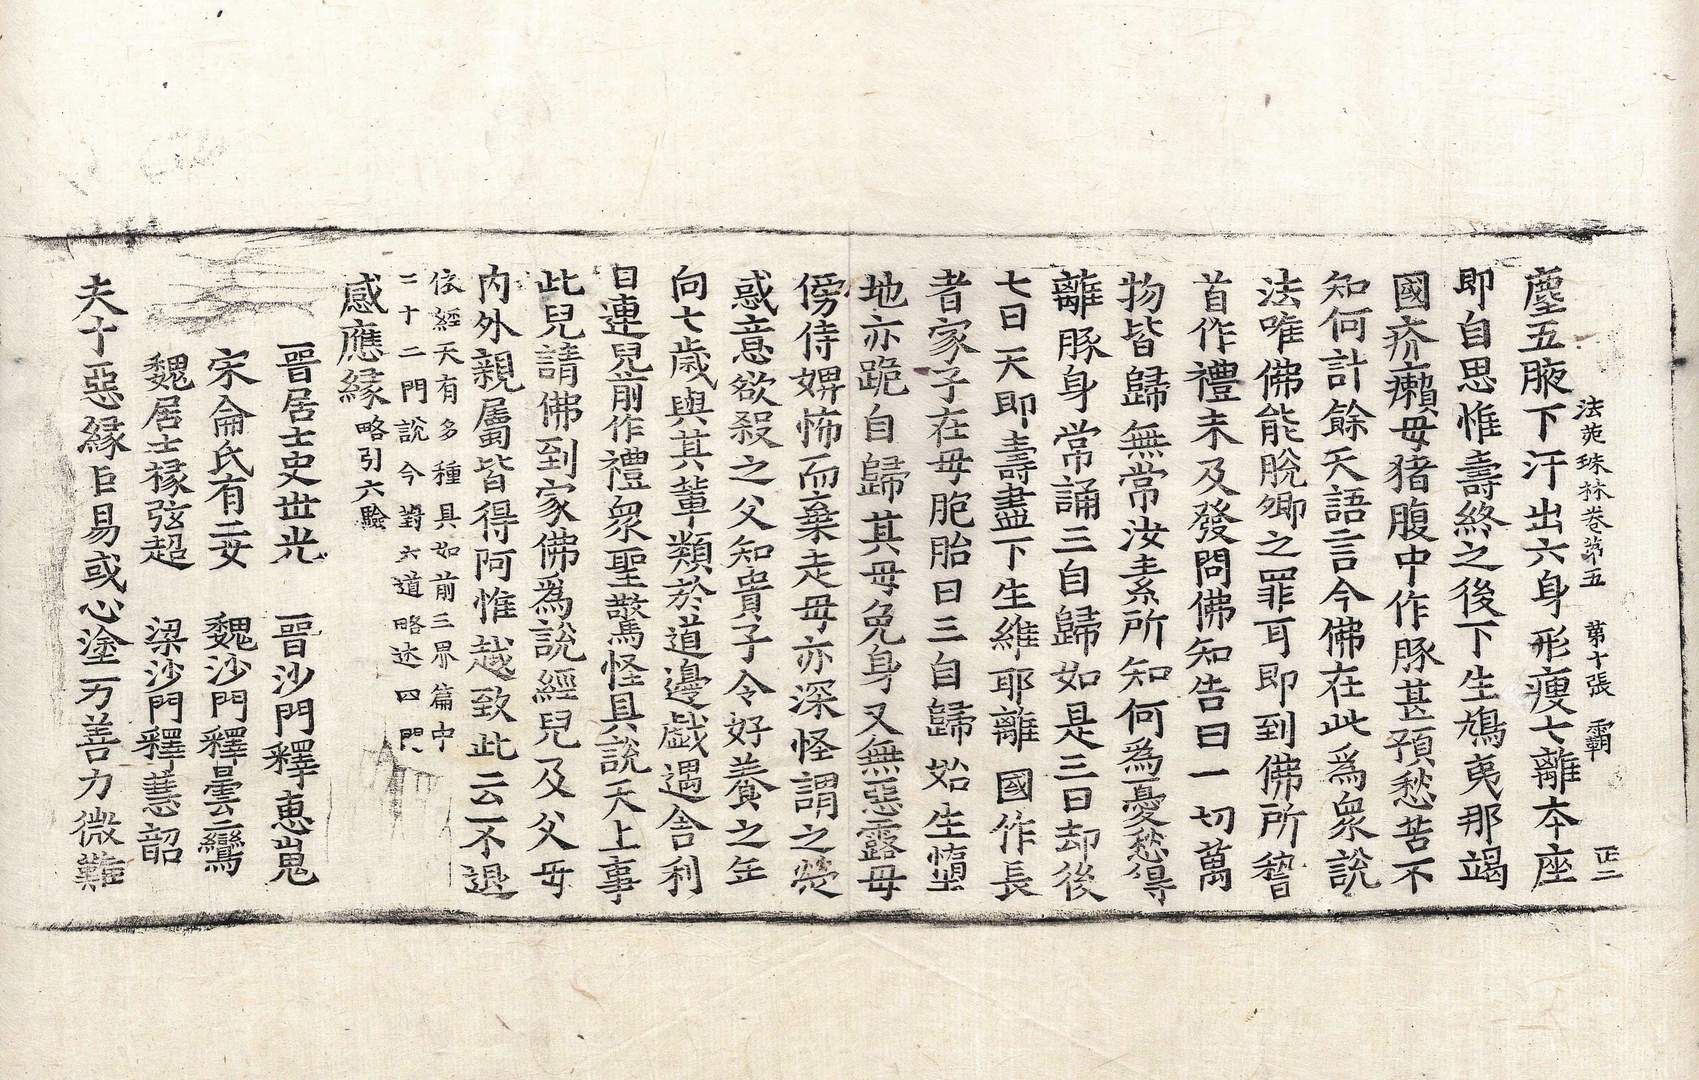 法苑珠林卷第五 第十張 霸 正二
塵五腋下汗出六身形瘦七離本座
即自思惟壽終之後下生鳩夷那竭
國疥癩母猪腹中作豚甚預愁苦不
知何計餘天語言今佛在此為衆說
法唯佛能脫卿之罪耳即到佛所稽
首作禮未及發問佛知告曰一切萬
物皆歸無常汝素所知何為憂愁得
離豚身常誦三自歸如是三日却後
七日天即壽盡下生維耶離國作長
者家子在母胞胎日三自歸始生墮
地亦跪自歸其母免身又無惡露母
傍侍婢怖而棄走母亦深怪謂之熒
惑意欲殺之父知貴子令好養之年
向七歲與其軰類於道邊戯遇舍利
目連兒前作禮衆聖驚怪具說天上事
此兒請佛到家佛為說經兒及父母
內外親屬皆得阿惟越致此云不退
依經天有多種具如前三界篇中
二十二門說今對六道略述四門
感應緣略引六驗
晉居士史世光 晉沙門釋惠嵬
宋侖氏有二女 魏沙門釋曇鸞
魏居士椽弦超 梁沙門釋慧韶
夫十惡緣巨易或心塗万善力微難